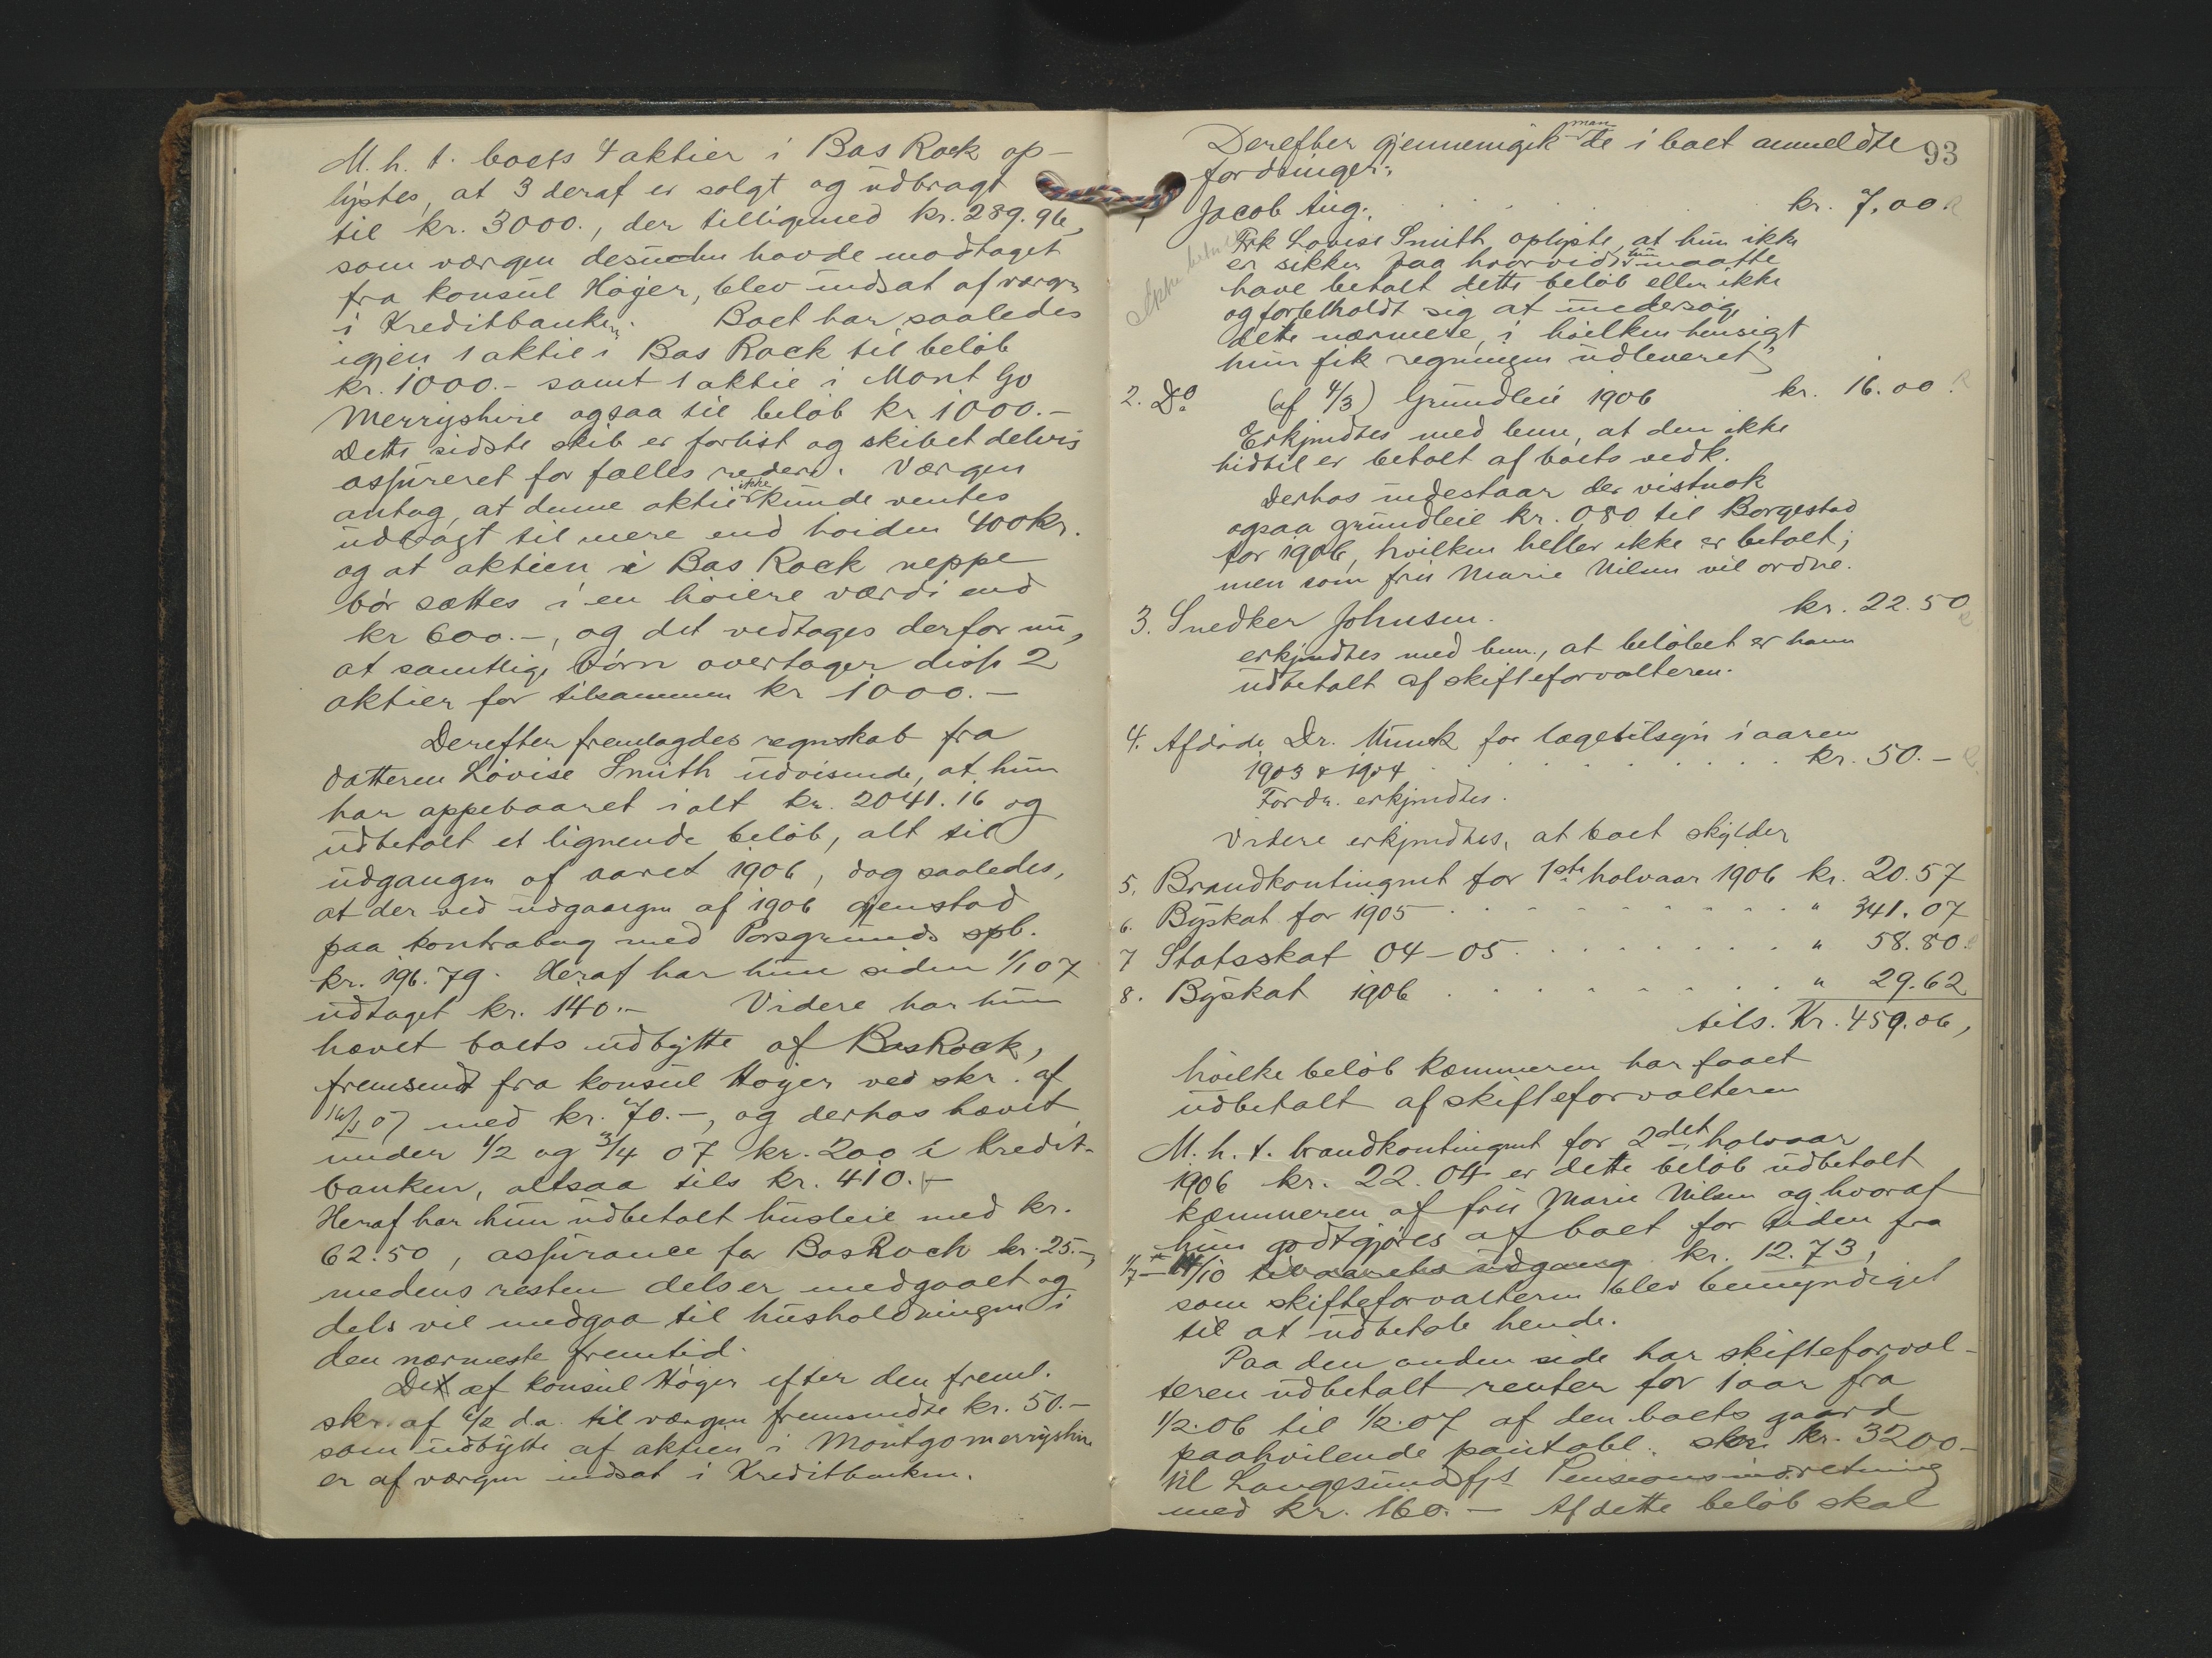 M. h. t. boets 4 aktier i Bas Rock op-
lystes, at 3 deraf er solgt og udbragt
til kr. 3000., der tilligemed kr. 289.96,
som værgen desuden havde modtaget
fra konsul Höyer, blev indsat af værgen
i Kreditbanken. Boet har saaledes
igjen 1 aktie i Bas Rock til beløb
kr. 1000.- samt 1 aktie i Mont Go
Merryshire ogsaa til beløb kr 1000.-
Dette sidste skib er forlist og skibet delvis
assureret for fælles rederi. Værgen
antog, at denne aktie ikke kunde ventes
udbragt til mere end höiden 400 kr.
og at aktien i Bas Rock neppe
bör sættes i en höiere værdi end
kr 600.-, og det vedtoges derfor nu,
at samtlige börn overtager disse 2
aktier for tilsammen kr 1000.-
Derefter fremlagdes regnskab fra
datteren Lovise Smith udvisende, at hun
har oppebaaret ialt kr. 2041.16 og
udbetalt et lignende beløb, alt til
udgangen af aaret 1906, dog saaledes,
at der ved udgangen af 1906 gjenstod
paa kontrabog med Porsgrunds spb.
kr. 196.79. Heraf har hun siden 1/1 07
udtaget kr. 140.- Videre har hun
hævet boets udbytte af Bas Rock,
fremsendt fra konsul Höyer ved skr. af
07 med kr. 70.-, og derhos hævet
under 1/2 og 3/4 07 kr. 200 i Kredit-
banken, altsaa tils kr. 410.-
Heraf har hun udbetalt husleie med kr.
62.50, assurance for Bas Rock kr. 25.-,
medens resten dels er medgaaet og
dels vil medgaa til husholdningen i
den nærmeste fremtid.
Det af konsul Höyer efter den freml.
skr. af d.a. til værgen fremsendte kr. 50.-
som udbytte af aktien i Montgomerryshire
er af værgen indsat i Kreditbanken.
93
Derefter gjennemgik man de i boet anmeldte
fordringer:
Jacob Aug. kr. 7.00
Frk Lovise Smith oplyste, at hun ikke
er sikker paa hvorvidt hun maatte
have betalt dette beløb eller ikke
og forbeholdt sig at undersöge
dette nærmere, i hvilken hensigt
hun fik regningen udleveret.
2. Do (af 4/3) Grundleie 1906 kr. 16.00
Erkjendtes med bem., at den ikke
hidtil er betalt af boets vedk.
Derhos indestaar der vistnok
ogsaa grundleie kr. 0.80 til Borgestad
for 1906, hvilken heller ikke er betalt;
men som fru Marie Nilsen vil ordne.
3. Snedker Johnsen. kr. 22.50
erkjendtes med bem., at beløbet er ham
udbetalt af skifteforvalteren.
4. Afdöde Dr. Munk for lægetilsyn i aaren
1903 & 1904 kr. 50.-
Fordr. erkjendtes.
Videre erkjendtes, at boet skylder
5. Brandkontingent for 1ste halvaar 1906 kr. 20.57
6. Byskat for 1905 " 341.07
7 Statsskat 04-05 " 58.80
8. Byskat 1906 " 29.62
tils. Kr. 459.06,
hvilke beløb kæmneren har faaet
udbetalt af skifteforvalteren
M. h. t. brandkontingent for 2det halvaar
1906 kr. 22.04 er dette beløb udbetalt
kæmneren af fru Marie Nilsen og hvoraf
hun godtgjöres af boet for tiden fra
1/7 - /10 til aarets udgang kr. 12.73,
som skifteforvalteren blev bemyndiget
til at udbetale hende.
Paa den anden side har skifteforval-
teren udbetalt renter for 1 aar fra
1/2.06 til 1/2.07 af den boets gaard
paahvilende pantobl. stor kr. 3200-
til Langesundfj.s Pensionsindretning
med kr. 160.- Af dette beløb skal